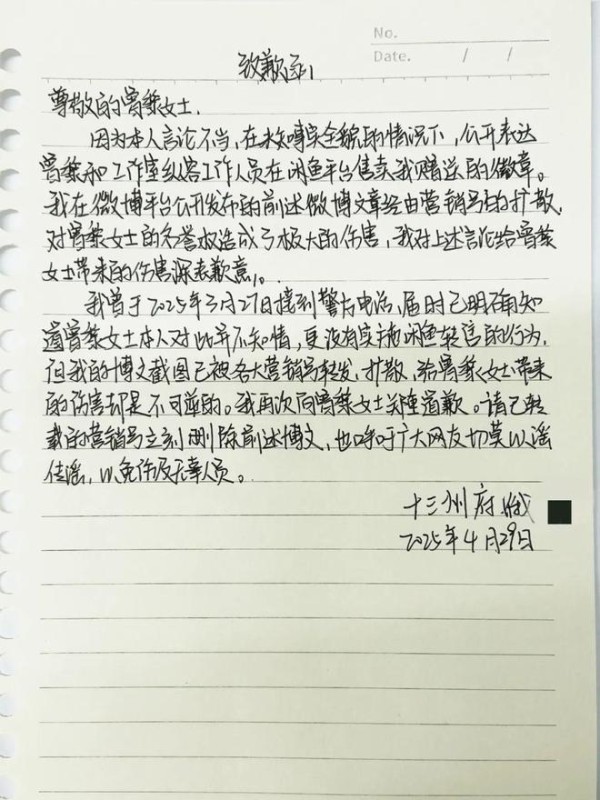 No.
Date. / /
致歉函
尊敬的曾黎女士.
因为本人言论不当,在未知事实全貌的情况下,公开表达
曾黎和工作室纵容工作人员在闲鱼平台售卖我赠送的徽章。
我在微博平台公开发布的前述微博文章经由营销号的扩散,
对曾黎女士的名誉权造成了极大的伤害,我对上述言论给曾黎
女士带来的伤害深表歉意。
我曾于2025年3月27日接到警方电话,届时已明确知
道曾黎女士本人对此并不知情,更没有实施闲鱼转售的行为,
但我的博文截图已被各大营销号转发、扩散,给曾黎女士带来
的伤害却是不可逆的。我再次向曾黎女士郑重道歉。请已转
载的营销号立刻删除前述博文,也呼吁广大网友切莫以谣
传谣,以免伤及无辜人员。
十三州府.
2025年4月29日